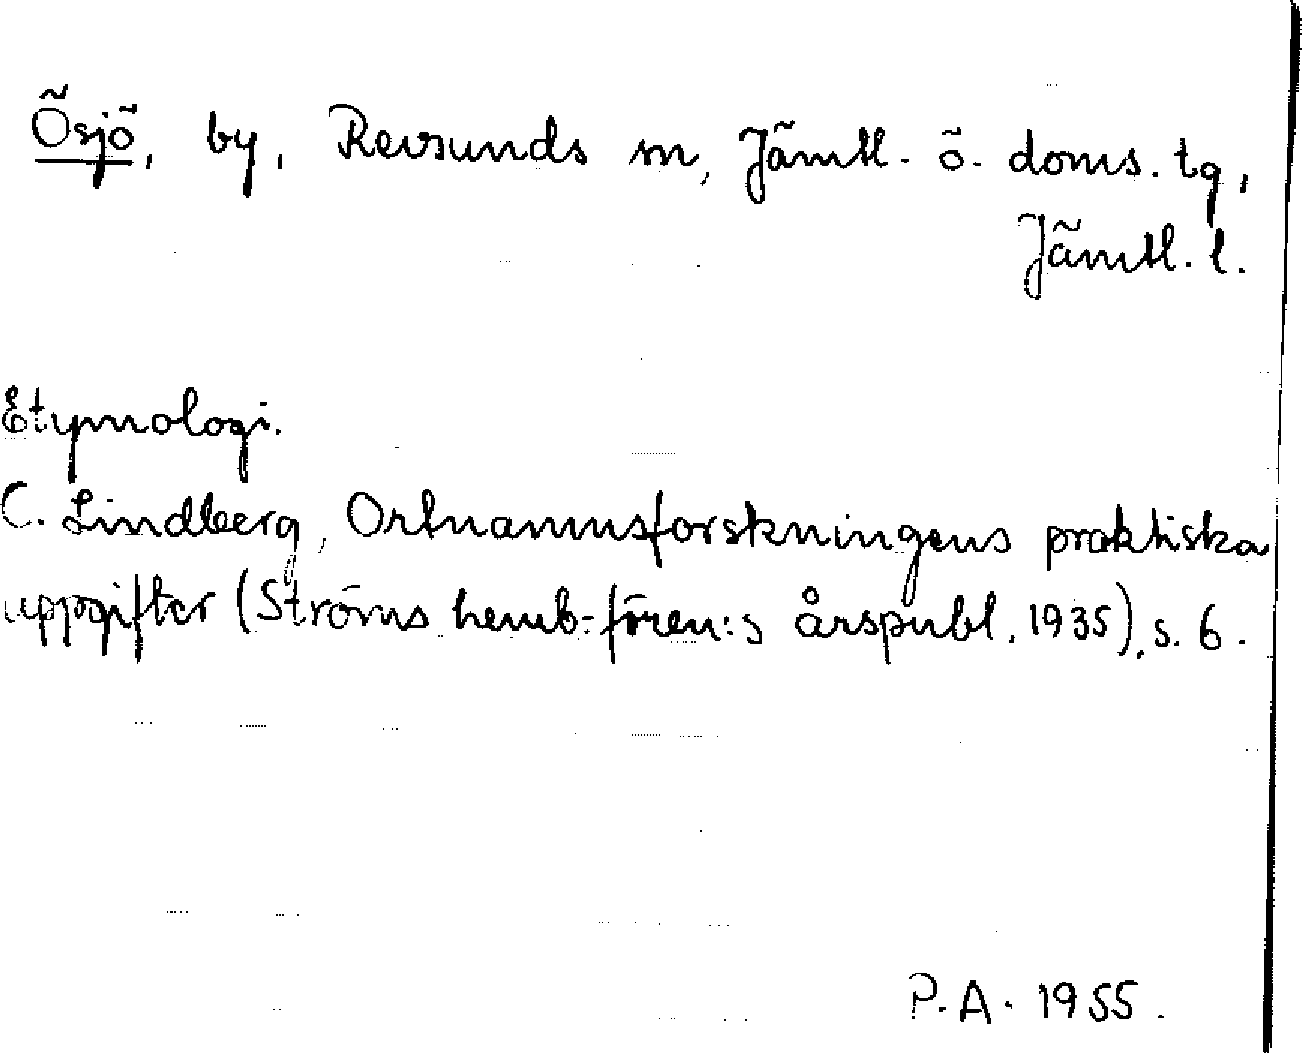 Ösjö, by, Revsunds sn, Jämtl. ö. doms. tg,
Jämtl. l.
Etymologi.
C. Lindberg, Ortnamnsforskningens praktiska
uppgifter (Ströms hemb-fören:s årspubl. 1935), s. 6.
P. A. 1955.